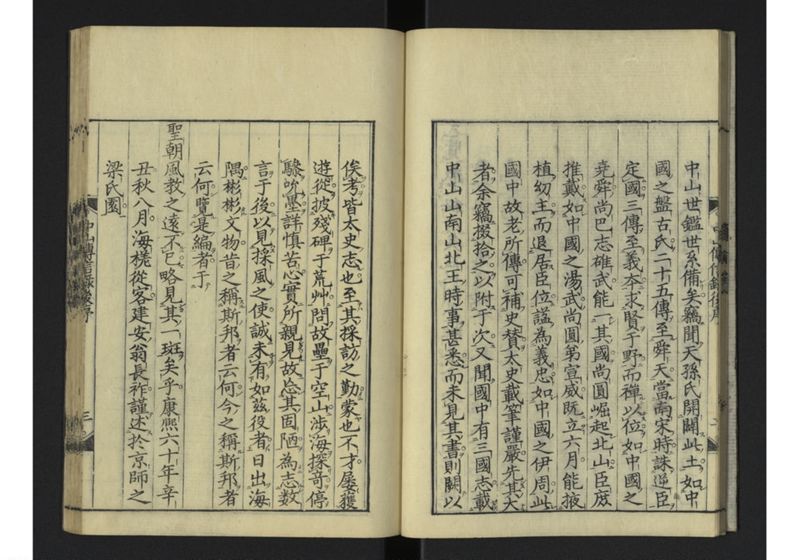 中山世鑑世系備矣竊聞天孫氏開闢此土如中
國之盤古氏二十五傳至舜天當南宋時誅逆臣
定國三傳至義本求賢于野而禪以位如中國之
堯舜尚巴志雄武能一其國尚圓崛起北山臣庶
推戴如中國之湯武尚圓第宣威既立六月能掖
植幼主而退居臣位謚為義忠如中國之伊周此
國中故老所傳可補史賛太史載筆謹嚴先其大
者余竊掇拾之以附于次又聞國中有三國志載
中山山南山北王時事甚悉而未見其書則闕以
俟考皆太史志也至其採訪之勤蒙也不才屢獲
遊從披殘碑于荒艸問故壘于空山涉海探奇停
驂吮墨詳慎苦心實所親見故忘其固陋為志數
言于後以見採風之使誠未有如茲役者日出海
隅彬彬文物昔之稱斯邦者云何今之稱斯邦者
云何覽是編者于
聖朝風教之遠不已略見其一斑矣乎康熙六十年辛
丑秋八月海槎從客建安翁長祚謹述於京師之
梁氏園
中山傳信錄後序
三